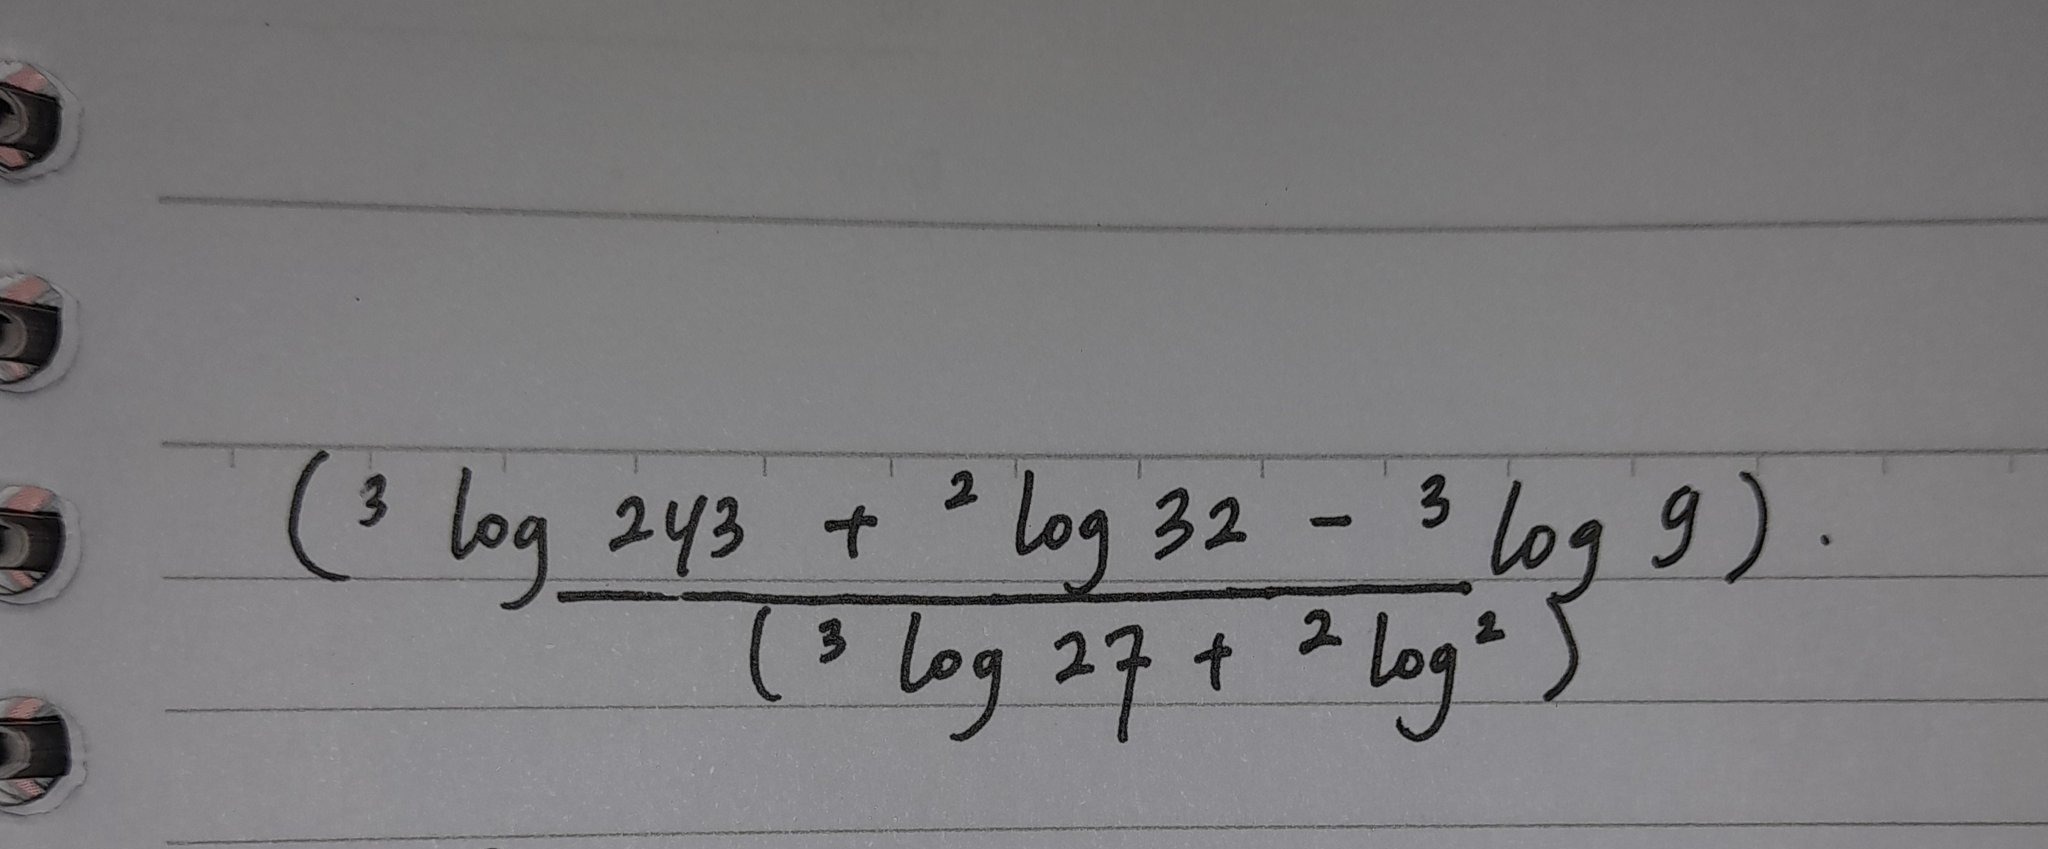 (³ log 243 + ² log 32 - ³ log 9).
(³ log 27 + ² log ²)